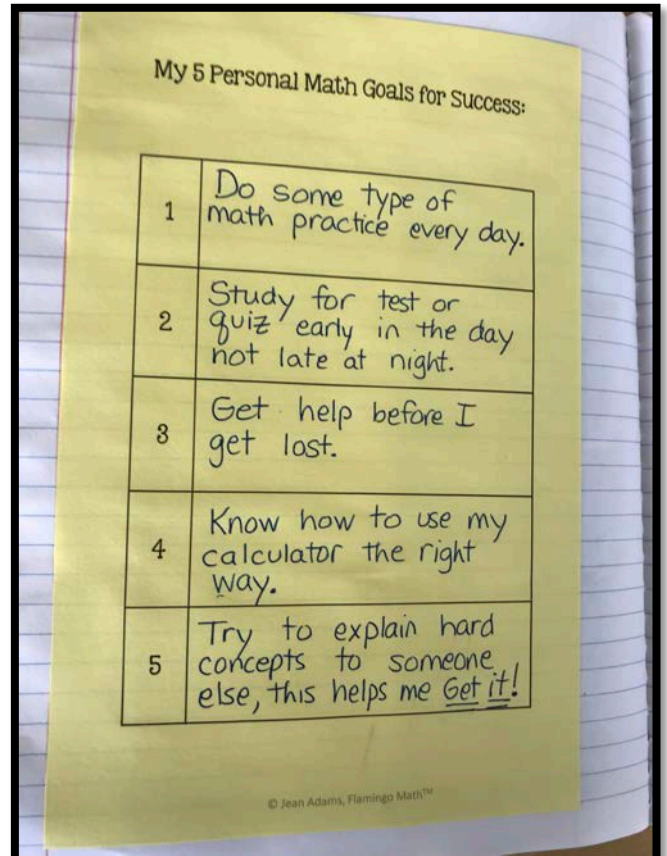 My 5 Personal Math Goals for Success:
1
Do some type of
math practice every day.
2
Study for test or
quiz early in the day
not late at night.
3
Get help before I
get lost.
4
Know how to use my
calculator the right
way.
5
Try to explain hard
concepts to someone
else, this helps me Get it!
© Jean Adams, Flamingo Math™